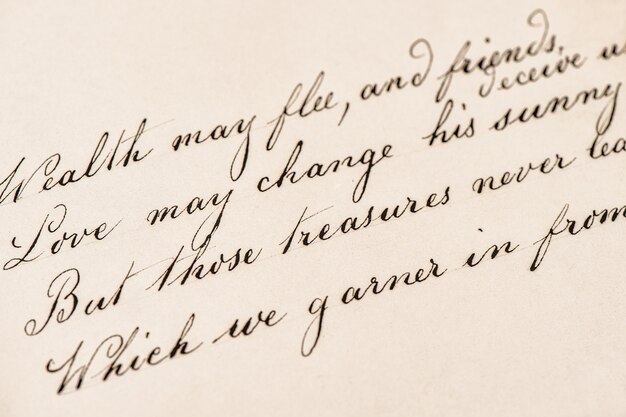 Wealth may flee, and friends deceive
Love may change his sunny
But those treasures never
Which we garner in from